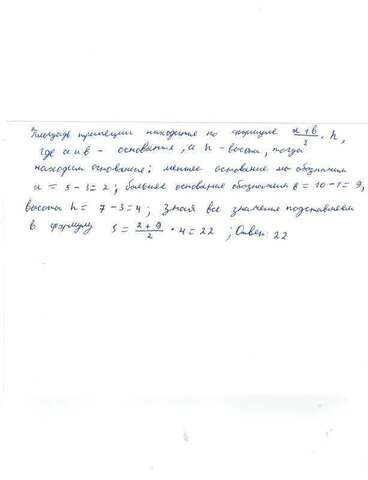 Площадь трапеции находится по формуле (a+b)/2 · h,
где a и b - основания, а h - высота, тогда
находим основания: меньшее основание мы обозначим
a = 5 - 3 = 2; большее основание обозначим b = 10 - 1 = 9,
высота h = 7 - 3 = 4; Зная все значения подставляем
в формулу S = (2+9)/2 · 4 = 22 ; Ответ: 22